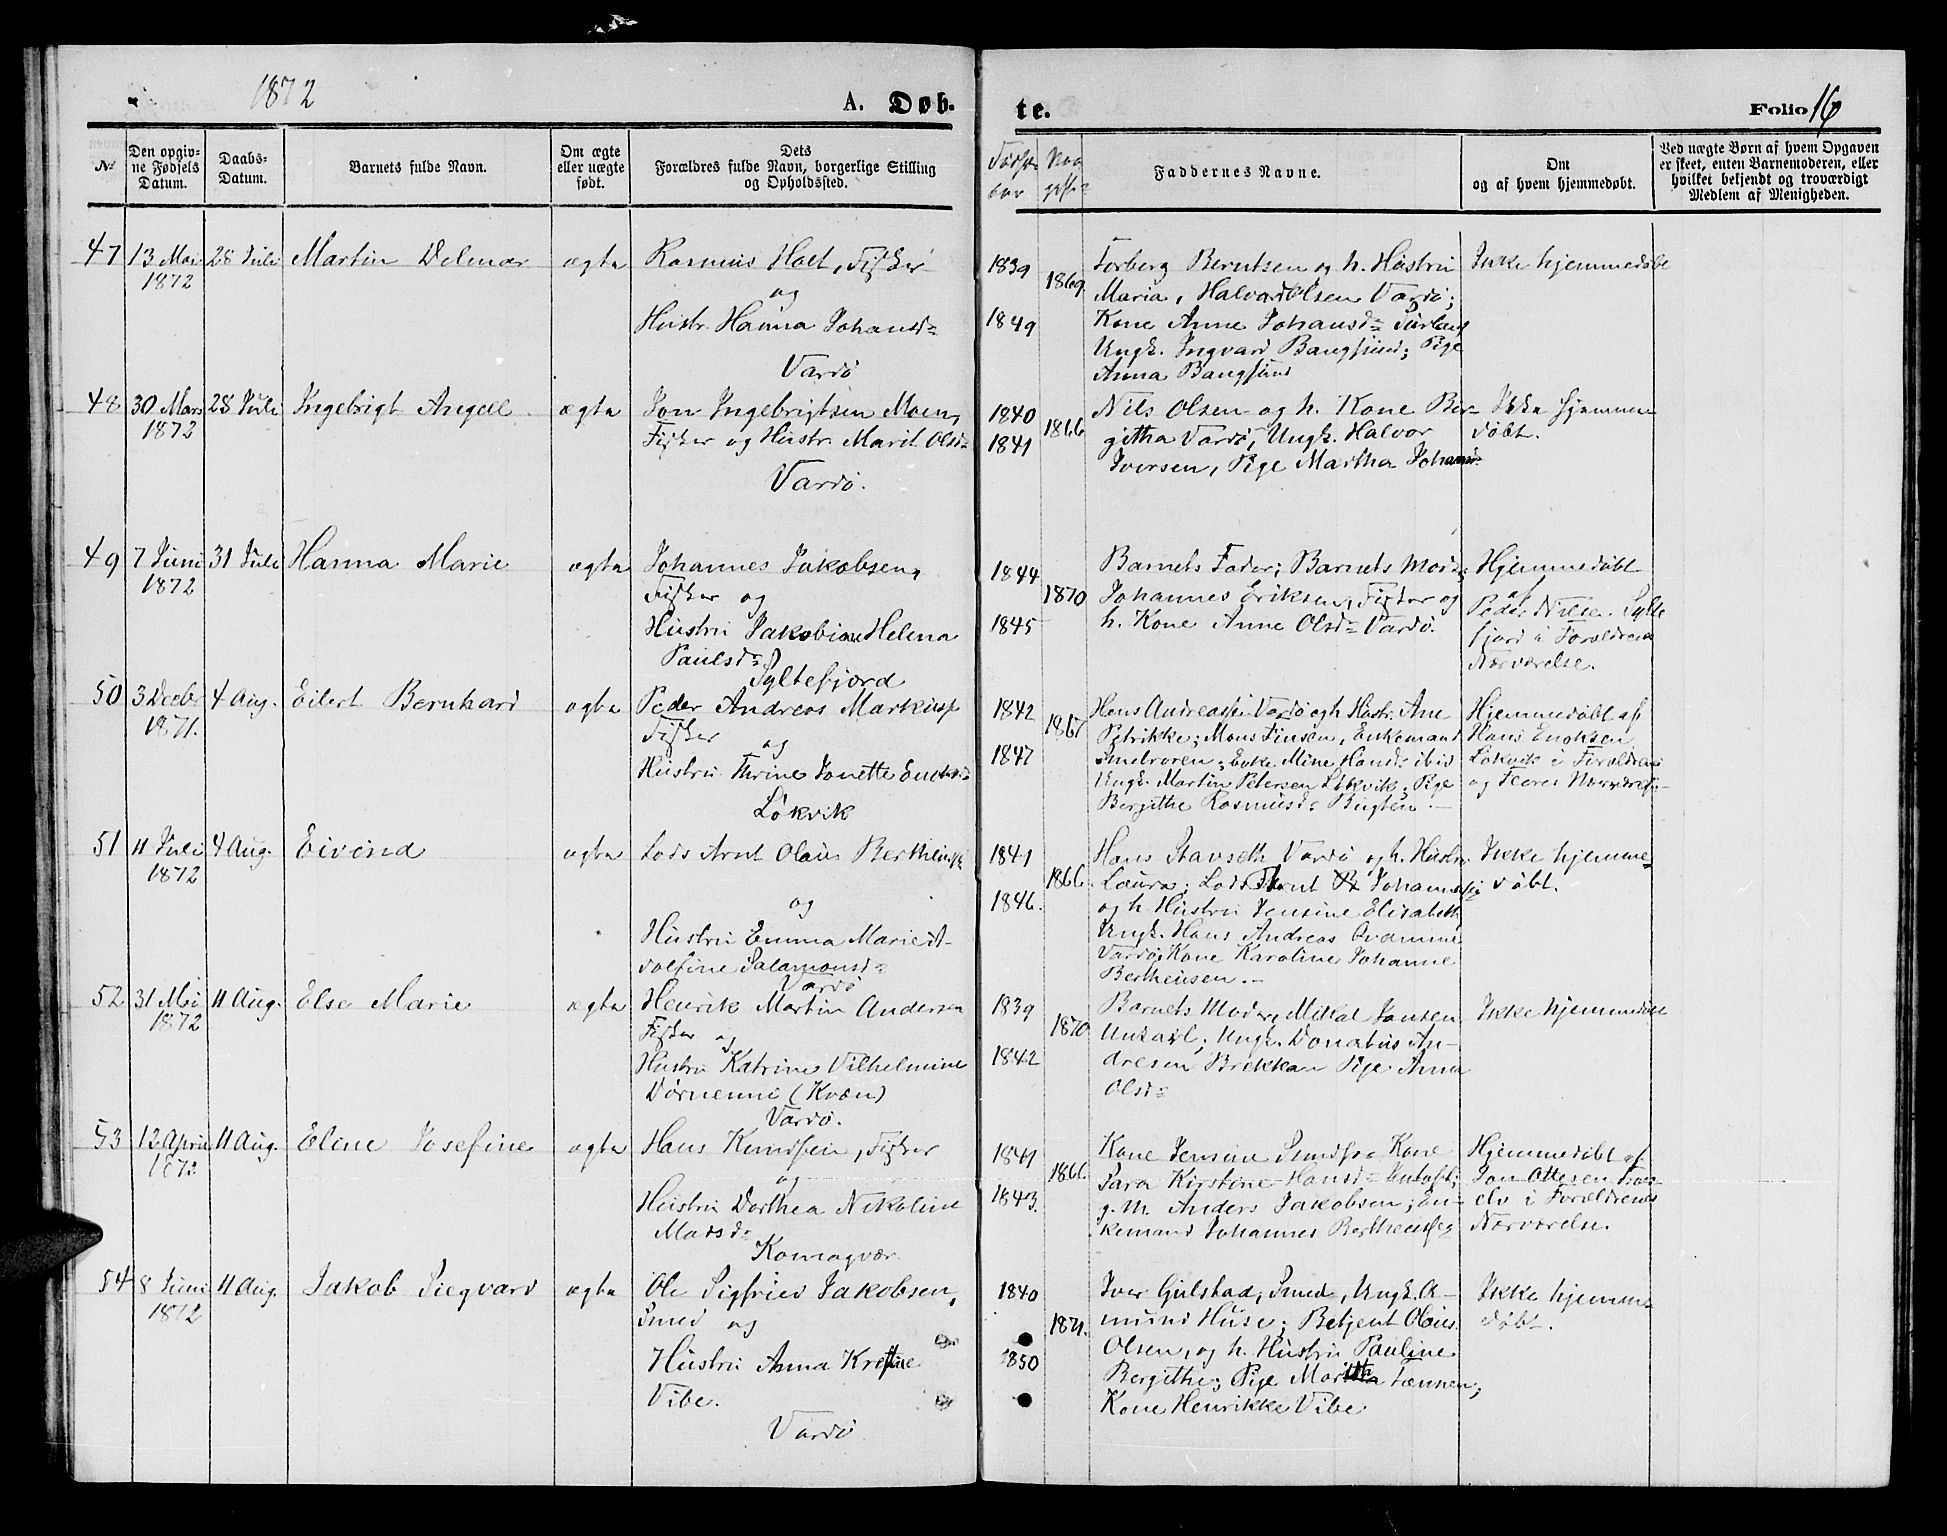 1872
A. Døb-
te.
Folio 16
No
Den opgiv-
ne Fødsels
Datum.
Daabs-
Datum.
Barnets fulde Navn.
Om ægte
eller uægte
født.
Dets
Forældres fulde Navn, borgerlige Stilling
og Opholdssted.
Faddernes Navne.
Om
og af hvem hjemmedøbt.
Ved uægte Børn af hvem Opgaven
er skeet, enten Barnemoderen, eller
hvilket bekjendt og troværdigt
Medlem af Menigheden.
47
13 Mai
1872
28 Juli
Martin Delmar
ægte
Rasmus Holt, Fisker
og
Hustr. Hanna Johansd=
Vardø
1839
1849
1869.
Torberg Berntsen og h. Hustru
Maria, Halvard Olsen Vardø;
Kone Anne Johansd=
Ungk. Ingvard Bangsund; Pige
Anna Bangsund
Ikke hjemmedøbt
48
30 Mars
1872
28 Juli
Ingebrigt Angell
ægte
Jon Ingebrigtsen Moen,
Fisker og Hustr. Marit Olsd=
Vardø.
1840
1841
1866
Nils Olsen og h. Kone Ber-
githa Vardø, Ungk. Halvor
Iversen, Pige Martha Johansd=
Ikke hjemme-
døbt.
49
7 Juni
1872
31 Juli
Hanna Marie
ægte
Johannes Jakobsen,
Fisker og
Hustru Jakobine Helena
Paulsd=
Syltefjord
1844
1845
1870
Barnets Fader; Barnets Moder;
Johannes Eriksen, Fisker og
h. Kone Anne Olsd= Vardø.
Hjemmedøbt
af
Peder Nilse. Sylte
fjord i Forældrenes
Nærværelse.
50
3 Decbr
1871.
4 Aug.
Eilert Bernhard
ægte
Peder Andreas Markus
Fisker
og
Hustru Thrine Jonette
Løkvik
1842
1847
1867
Hans Andreas Vardø og h Hustr. Ane
Petrikke; Mons Finsen, Enkemand
Smelroren; Enke Mine Hansd= ibid
Ungk. Martin Petersen Løkvik; Pige
Bergithe Rasmusd= Bugten.-
Hjemmedøbt af
Hans Enoksen
Løkvik i Forældrenes
og Fleres Nærværelse.-
51
11 Juli
1872
4 Aug.
Eivind
ægte
Lods Arnt Olaus Bertheus
og
Hustru Emma Marie A-
dolfine Salamonsd=
Vardø
1841
1846.
1866.
Hans Stavseth Vardø og h. Hustru
Laura; Lods Arnt Johannes
og h Hustru Jensine Elisabeth
Ungk. Hans Andreas Qvamme
Vardø; Kone Karoline Johanne
Bertheusen.-
Ikke hjemme-
døbt.
52
31 Mai
1872
11 Aug.
Else Marie
ægte
Henrik Martin Andersen
Fisker og
Hustru Katrine Vilhelmine
(Kvæn)
Vardø.
1839
1842
1870
Barnets Moder, Mikal Jansen
Ungk. Donatus An-
dresen Brekkan Pige Anna
Olsd=
Ikke hjemmedøbt
53
12 April
1872
11 Aug.
Eline Josefine
ægte
Hans Knudsen, Fisker
og
Hustru Dorthea Nikoline
Madsd=
Komagvær
1841
1843.
1866.
Kone Jensine Kone
Sara Kirstine Hansd=
g. M. Anders Jakobsen; En-
kemand Johannes Bertheus
Hjemmedøbt af
Jon Ottesen
elv i Forældrenes
Nærværelse.
54
8 Juni
1872
11 Aug.
Jakob Siegvard
ægte
Ole Sigfried Jakobsen,
Smed og
Hustru Anna Kristine
Vibe.
Vardø
1840
1850
1871.
Iver Gulstad, Smed, Ungk. A-
mund Huse; Betjent Olaus
Olsen, og h. Hustru Pauline
Bergithe; Pige Martha
Kone Henrikke Vibe
Ikke hjemme-
døbt.